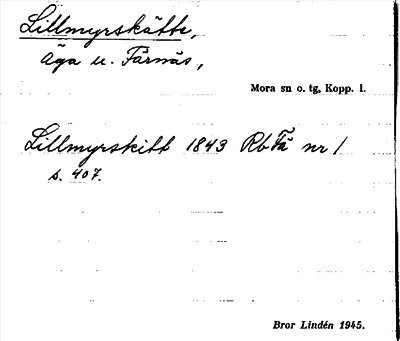 Lillmyrskäfte,
Äga u. Färnäs,
Mora sn o. tg, Kopp. l.
Lillmyrskitt 1843 Rb Fä nr 1
s. 407.
Bror Lindén 1945.